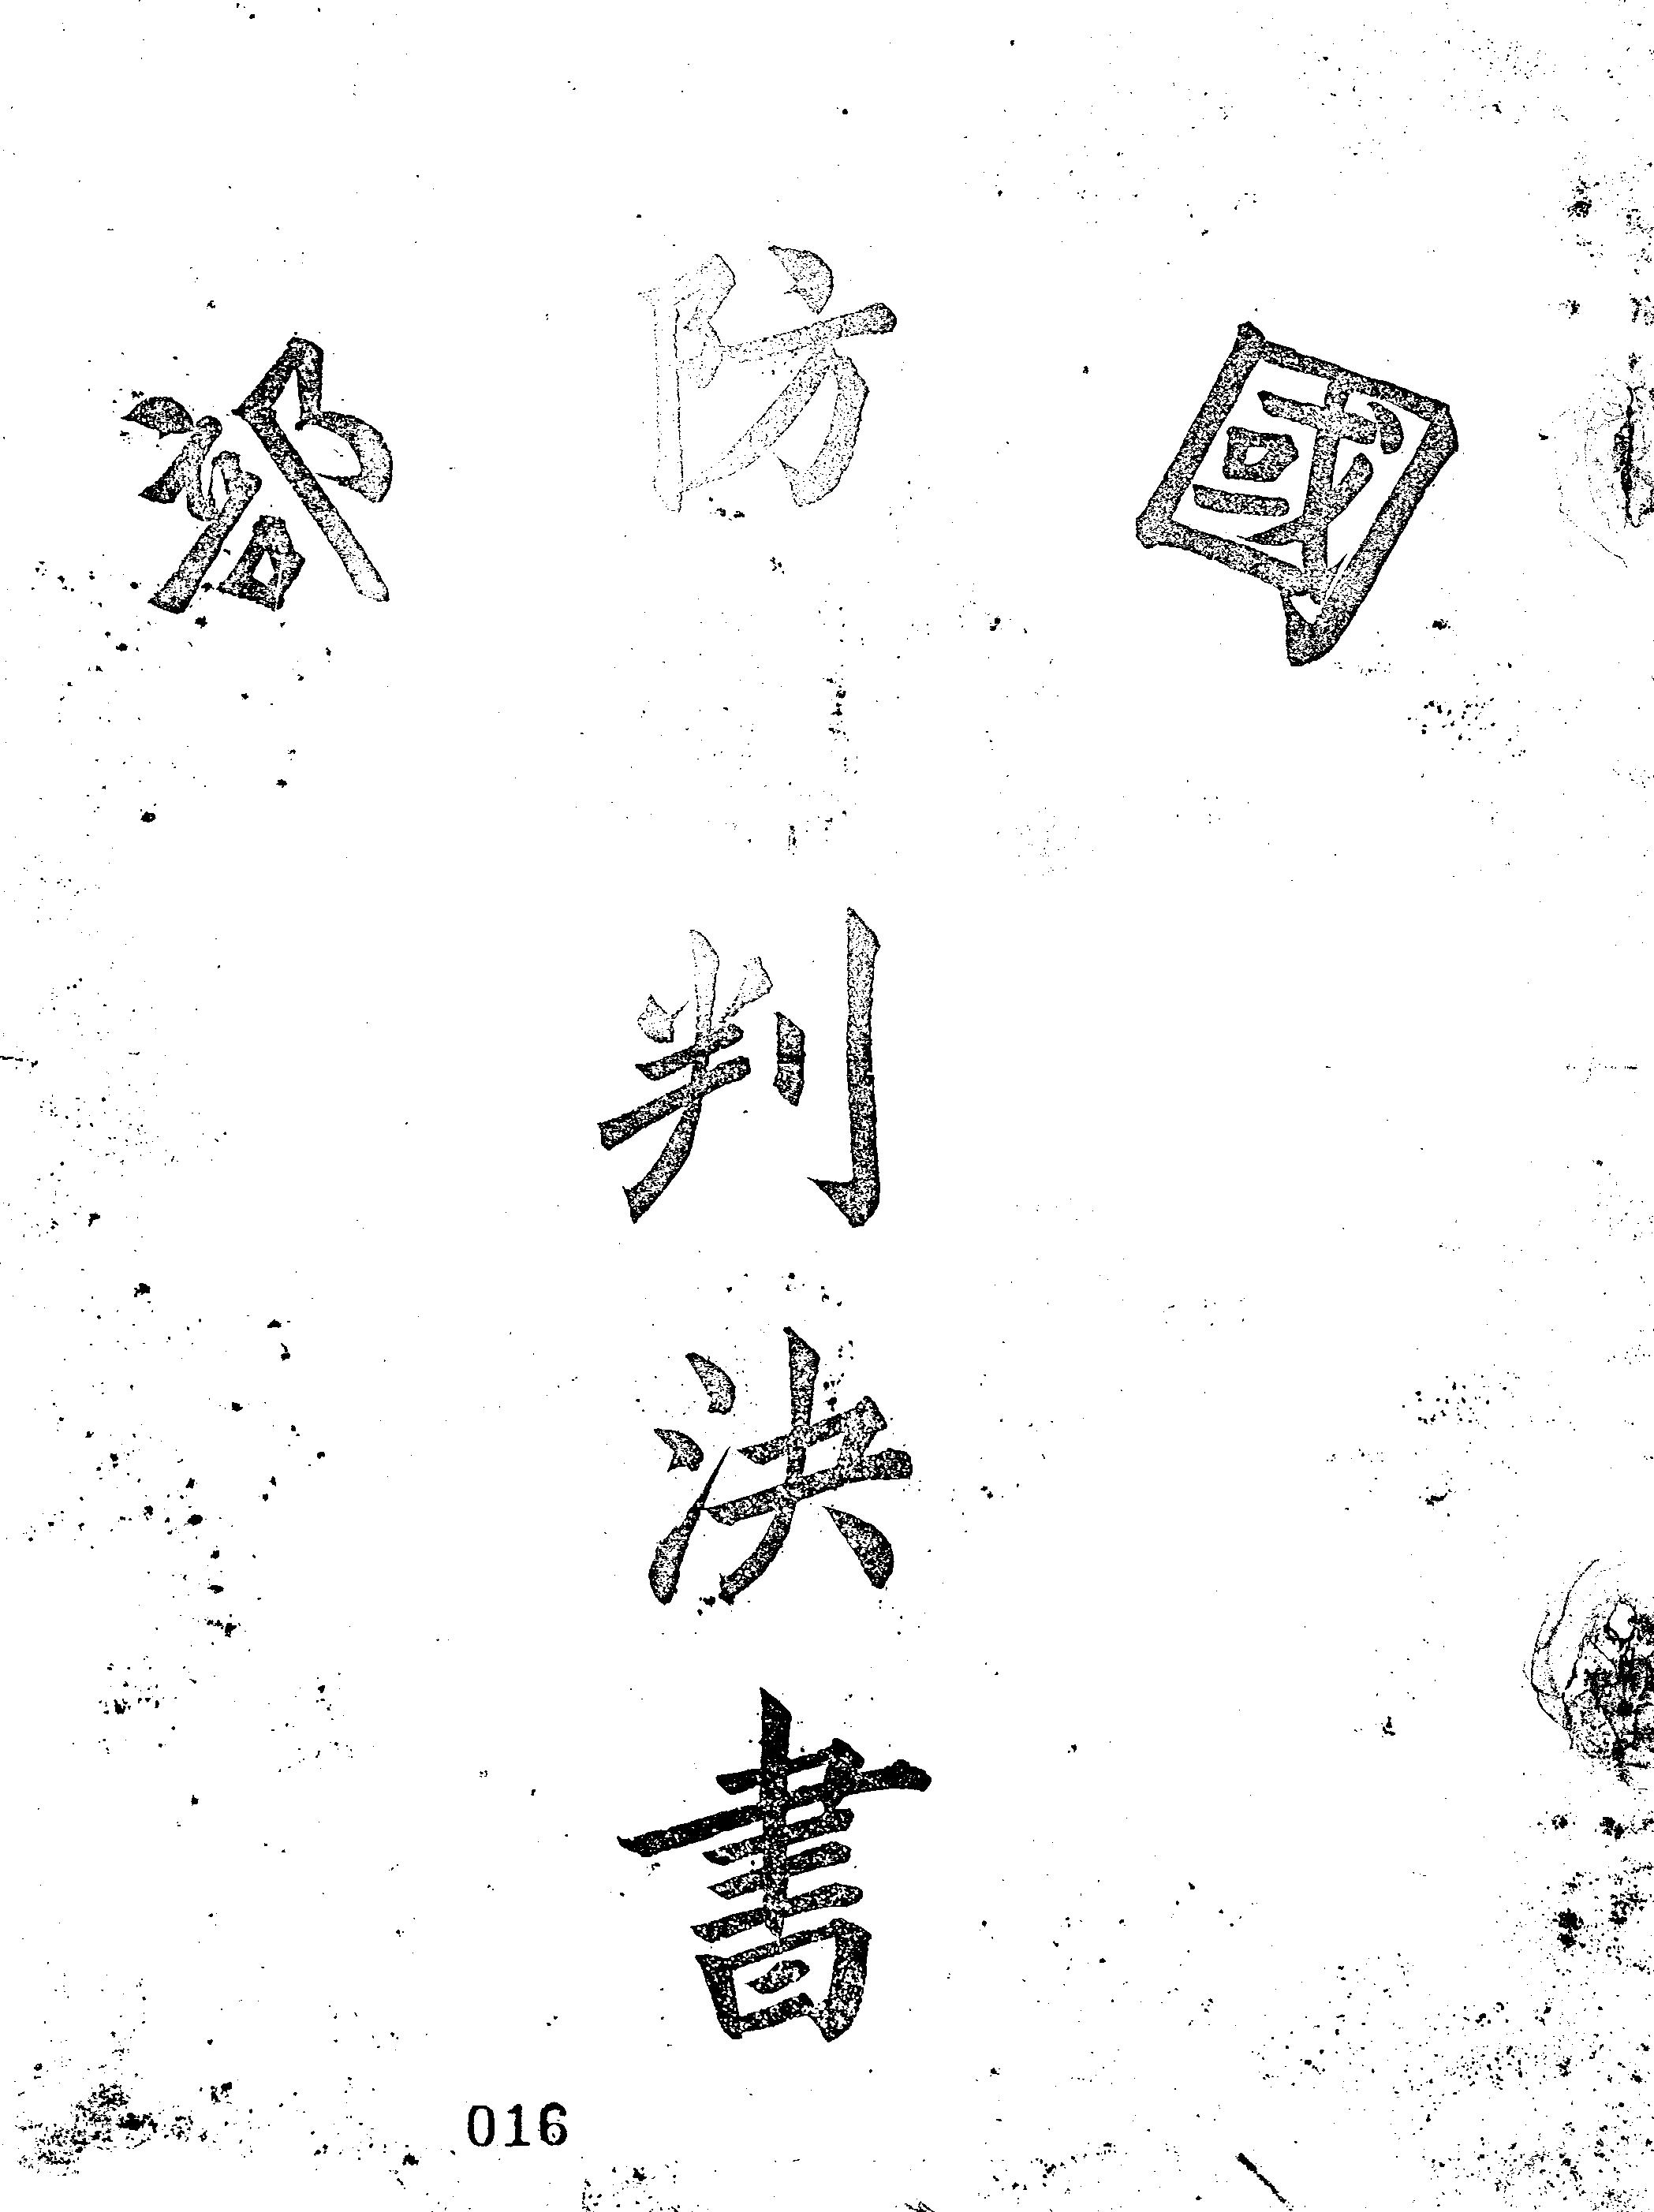 國防部
判決書
016